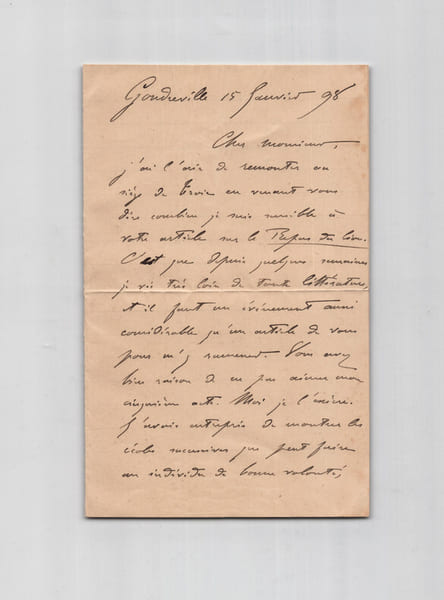 Gondreville 15 Janvier 98
Cher monsieur,
j'ai l'air de remonter au
siège de Troie en venant vous
dire combien je suis sensible à
votre article sur le Repas du Lion.
C'est que depuis quelques semaines
je vis très loin de toute littérature,
et il faut un événement aussi
considérable qu'un article de vous
pour m'y ramener. Vous avez
bien raison de ne pas aimer mon
cinquième acte. Moi je l'exècre.
J'avais entrepris de montrer les
écoles successives que peut faire
un individu de bonne volonté,